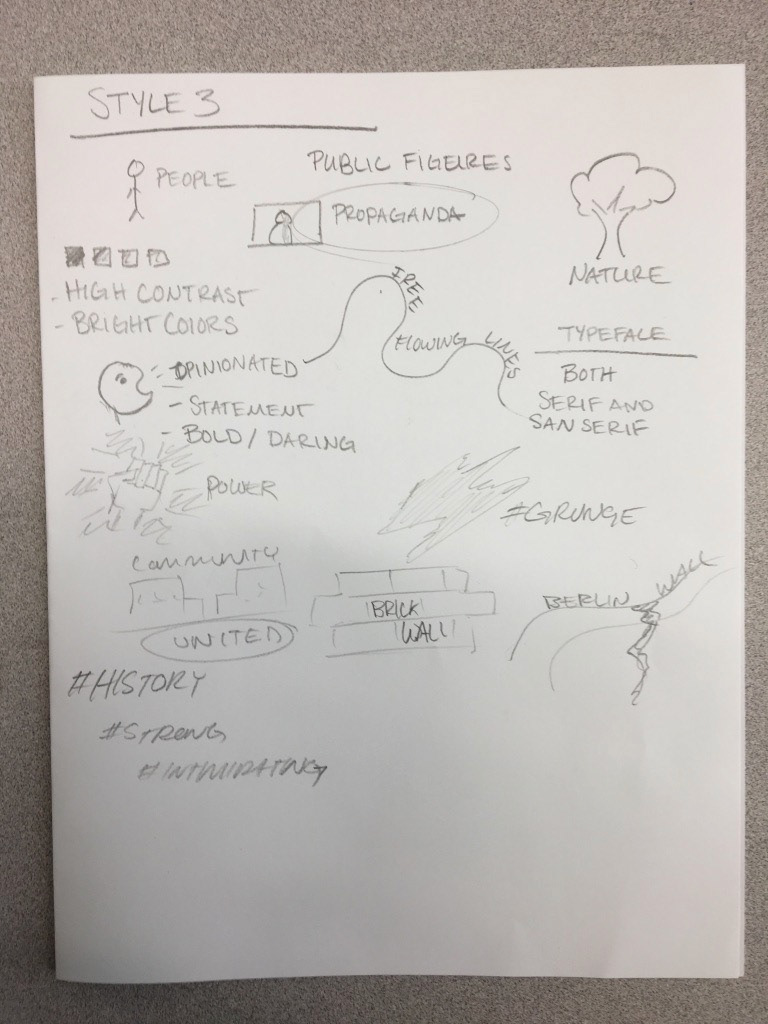 STYLE 3
PEOPLE
PUBLIC FIGURES
PROPAGANDA
NATURE
- HIGH CONTRAST
- BRIGHT COLORS
FREE
FLOWING LINES
TYPEFACE
BOTH
SERIF AND
SAN SERIF
OPINIONATED
- STATEMENT
- BOLD / DARING
POWER
#GRUNGE
COMMUNITY
UNITED
BRICK
WALL
BERLIN WALL
#HISTORY
#STRONG
#INTIMIDATING